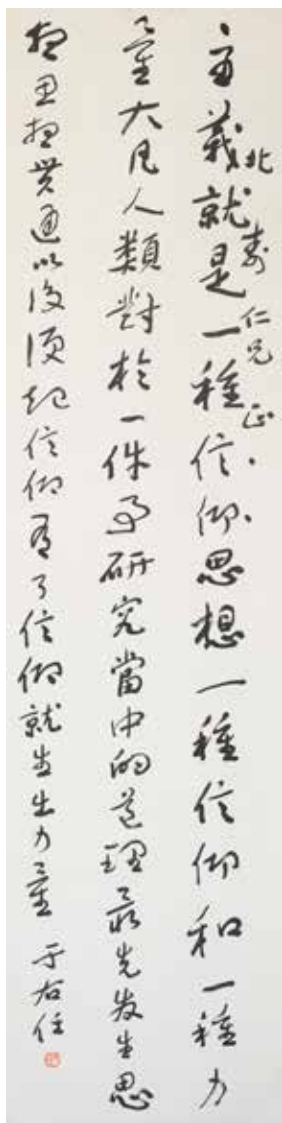 主義就是一種信仰思想一種信仰和一種力
北壽仁兄正
量大凡人類對於一件事研究當中的道理最先發生思
想思想貫通以後便起信仰有了信仰就生出力量 于右任